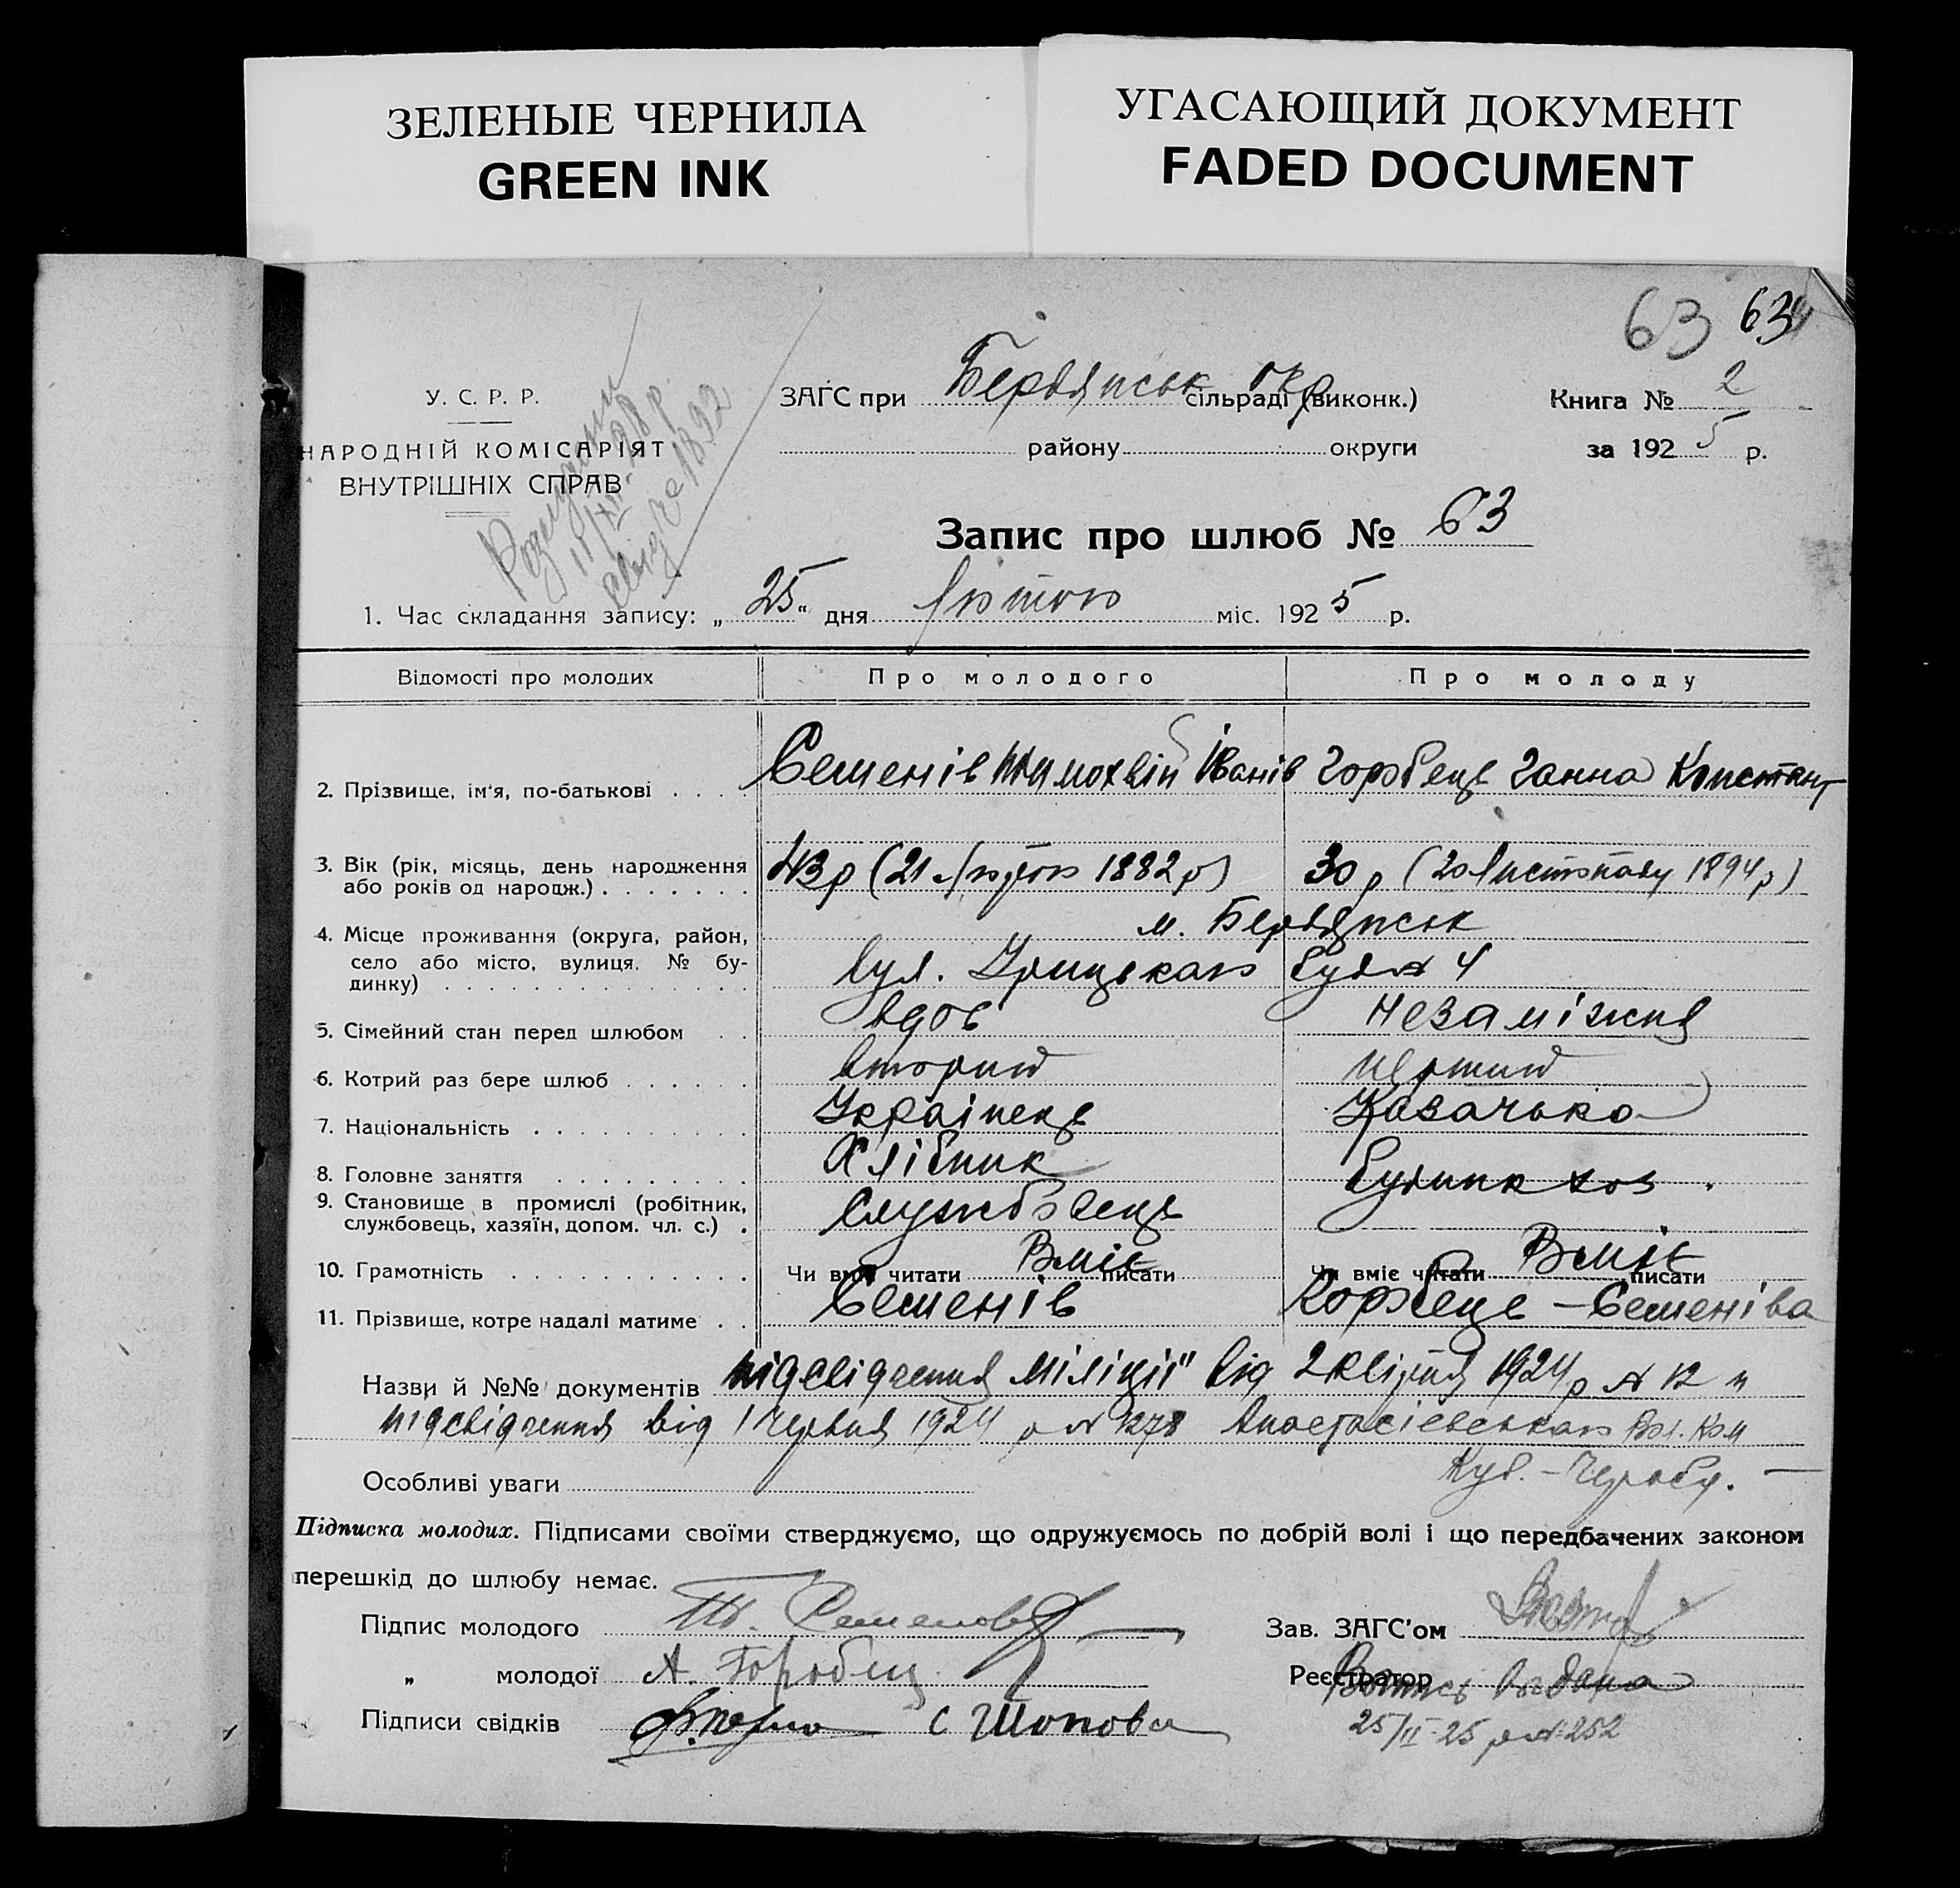 ЗЕЛЕНЫЕ ЧЕРНИЛА
GREEN INK
УГАСАЮЩИЙ ДОКУМЕНТ
FADED DOCUMENT
63 63
У. С. Р. Р.
НАРОДНІЙ КОМІСАРІЯТ
ВНУТРІШНІХ СПРАВ
ЗАГС при Бердянськ окр сільраді (виконк.)
району округи
Книга № 2
за 1925 р.
Запис про шлюб № 63
1. Час складання запису: „25" дня лютого міс. 1925 р.
Відомості про молодих Про молодого Про молоду
2. Прізвище, ім'я, по-батькові Семенів Тимохвій Іванів Горобець Ганна Констант
3. Вік (рік, місяць, день народження або років од народж.) 43 р (21 лютого 1882 р) 30 р (20 листопаду 1894 р)
4. Місце проживання (округа, район, село або місто, вулиця, № будинку) м. Бердянськ
вул. буд № 4
5. Сімейний стан перед шлюбом вдов незаміжня
6. Котрий раз бере шлюб вторий перший
7. Національність Українець Козачька
8. Головне заняття Хлібник
9. Становище в промислі (робітник, службовець, хазяїн, допом. чл. с.) службовець
10. Грамотність Чи вміє читати Вміє писати Чи вміє читати Вміє писати
11. Прізвище, котре надалі матиме Семенів – Семеніва
Назви й №№ документів підсвідчення міліції від 2 квітня 1924 р № 12 и
підсвідчення від 1 червня 1924 р № 1278
Особливі уваги
Підписка молодих. Підписами своїми стверджуємо, що одружуємось по добрій волі і що передбачених законом
перешкід до шлюбу немає.
Підпис молодого Т. Семенов
„ молодої А. Горобец
Підписи свідків С Шопова
Зав. ЗАГС'ом
Реєстратор
25/II 25 р № 252